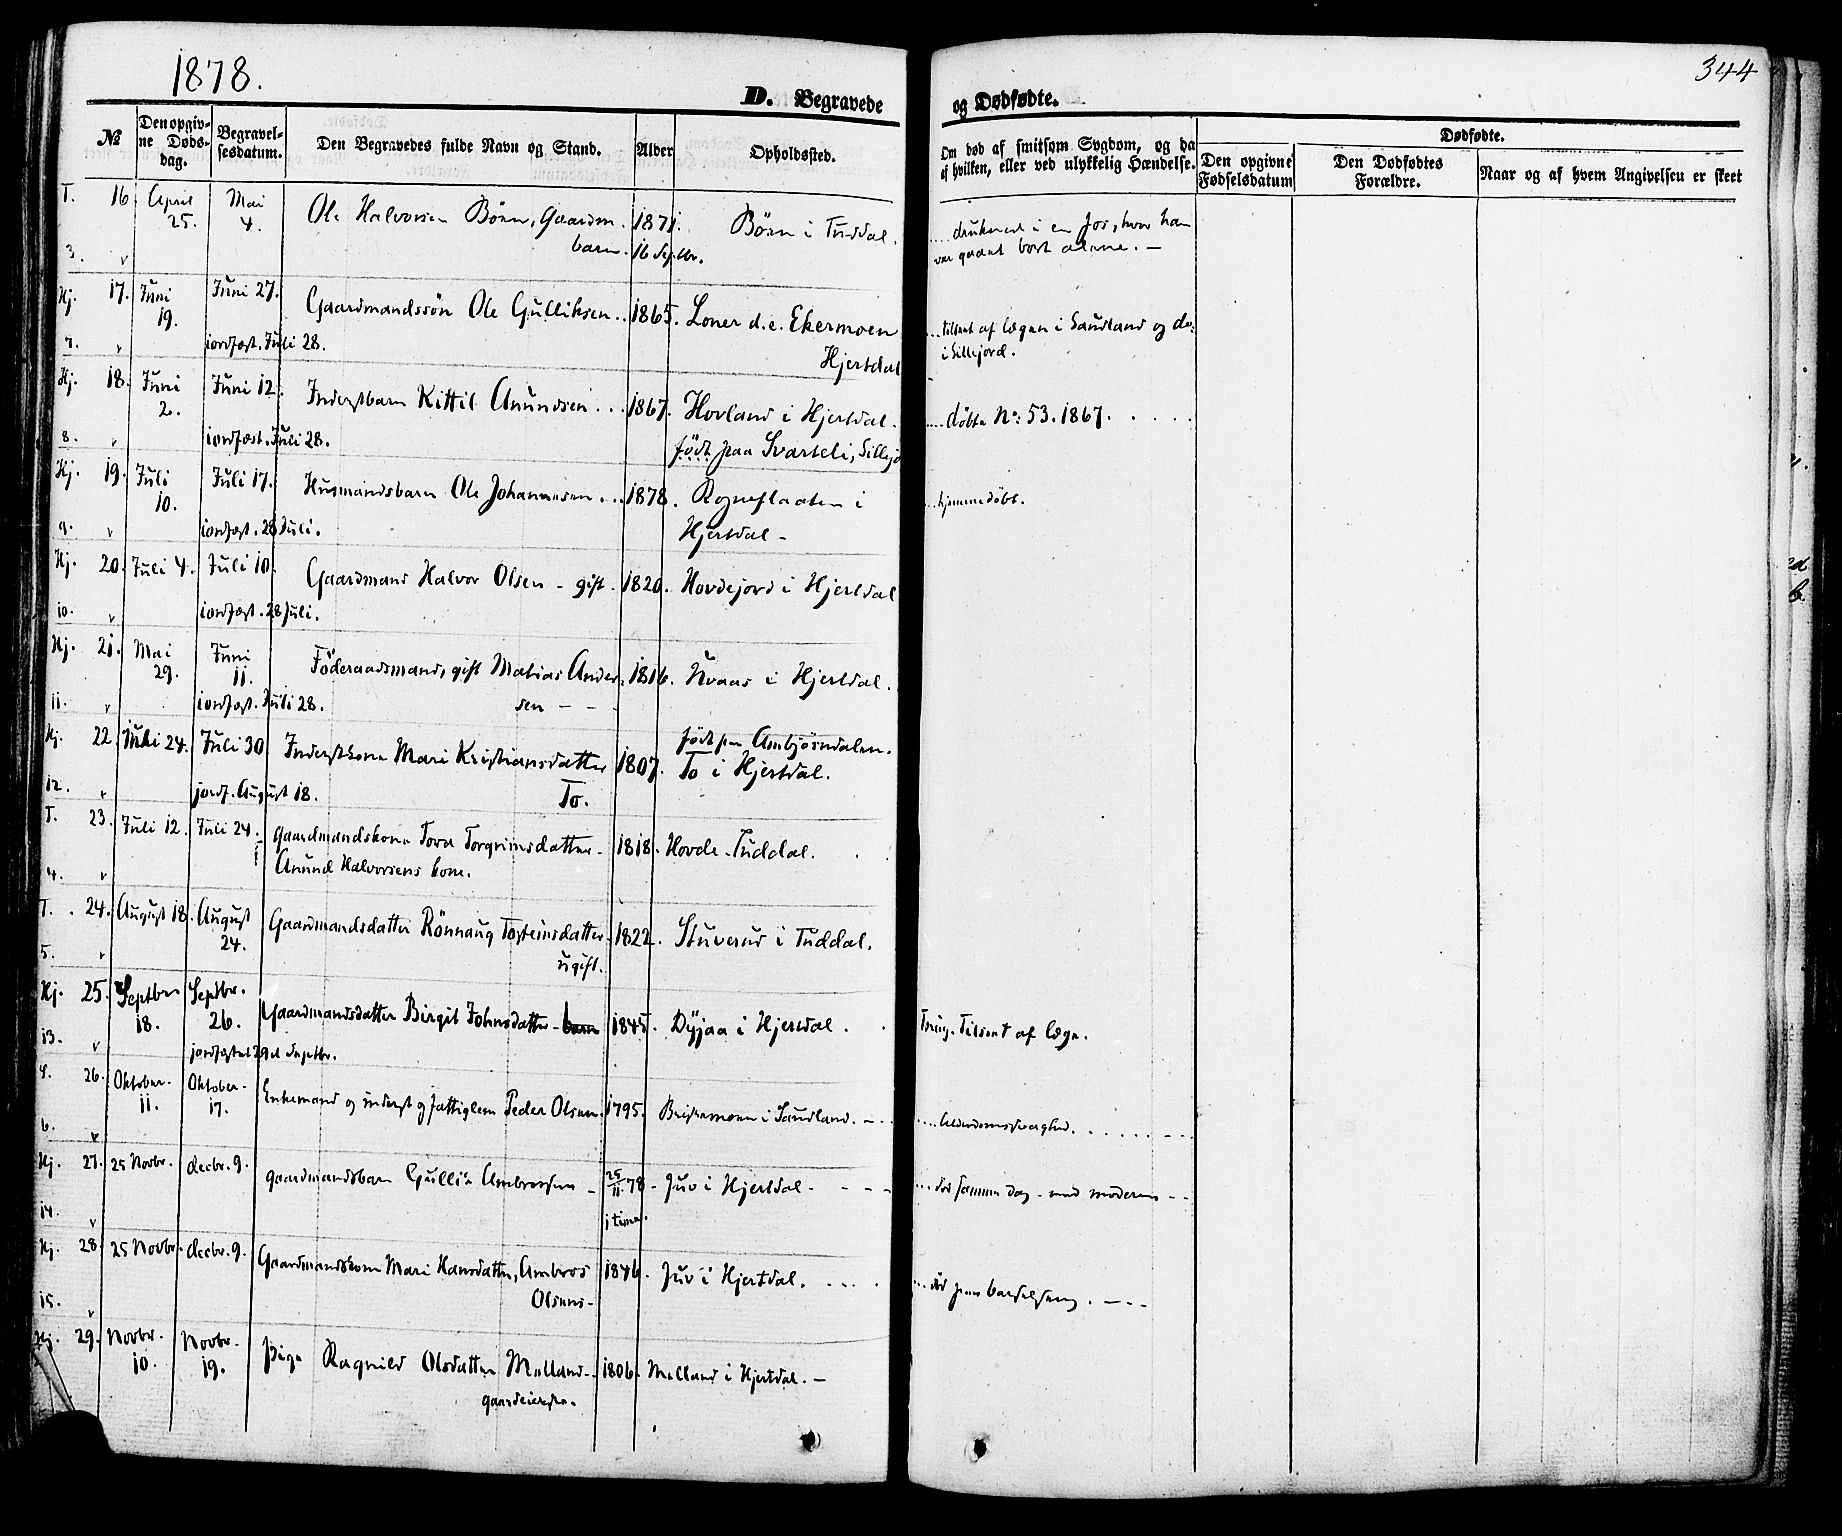 1878.
344
D. Begravede
og Dødfødte.
№
Den opgiv-
ne Døds-
dag.
Begravel-
sesdatum.
Den Begravedes fulde Navn og Stand.
Alder
Opholdssted.
Om død af smitsom Sygdom, og da
af hvilken, eller ved ulykkelig Hændelse.
Dødfødte.
Den opgivne
Fødselsdatum
Den Dødfødtes
Forældre.
Naar og af hvem Angivelsen er skeet
T. 16. April Mai Ole Halvorsen Böen, Gaardm. 1871. Böen i Tuddal. druknet i en
25. 4. barn. 16 Septbr. var gaaet bort alene. —
3. v
Hj. 17. Juni Juni 27. Gaardmandssön Ole Gulliksen .. 1865. Loner d.e. Ekermoen tilseet af Lægen i Saudland og do:
19. Hjertdal i Sillejord.
7. v iordfæst. Juli 28.
Hj. 18. Juni Juni 12. Inderstbarn Kittil Anundsen ... 1867. Hovland i Hjertdal. döbte No: 53. 1867.
2.
8. v iordfæst. Juli 28. födt paa Svarteli, Sillejo
Hj. 19. Juli Juli 17. Husmandsbarn Ole Johannesen ... 1878. Rogneflaaten i hjemmedöbt.
10. Hjertdal -
9. v iordfæst. 28 Juli.
Hj. 20. Juli 4. Juli 10. Gaardmand Halvor Olsen - gift. 1820. Hovdejord i Hjertdal
10. v iordfæst. 28 Juli.
Hj. 21. Mai Juni Föderaadsmand, gift Matias Ander- 1816. Nvaas i Hjertdal.
29. 11.
11. v iordfæst. Juli 28. sen - - -
Hj. 22. Juli 24. Juli 30 Inderstkone Mari Kristiansdatter 1807. födt paa Ambjörndalen.
To i Hjertdal.
12. v jordf. August 18. To.
T. 23. Juli 12. Juli 24. gaardmandskone Tova Torgrimsdatter - 1818. Hovde - Tuddal.
4. v Anund Halvorsens kone.
T. 24. August 18. August Gaardmandsdatter Rönnaug Torsteinsdatter - 1822. Stuverud i Tuddal.
24.
5. v ugift.
Hj. 25. Septbr Septbr. Gaardmandsdatter Birgit Johnsdatter - barn 1845. Dyjaa i Hjertdal. Tilseet af Læge.
18. 26.
13. v jordfæstet 29d Septbr.
S. 26. Oktober. Oktober. Enkemand og inderst og fattiglem Peder Olsen. 1795. i Saudland. - Alderdomssvaghed.
11. 17.
6. v
Hj. 27. 25 Novbr. decbr. 9. gaardmandsbarn Gullik Ambrossen - 25/11 78 - Juv i Hjertdal. - död samme Dag - med moderen - -
14. v 1 time.
Hj. 28. 25 Novbr. decbr. 9. Gaardmandskone Mari Hansdatter, Ambros 1846. Juv i Hjertdal. död paa barselseng. - - -
15. v Olsens -
Hj. 29. Novbr. Novbr. Pige Ragnild Olsdatter Mælland - 1806. Mælland i Hjertdal. -
10. 19. gaardeierske.